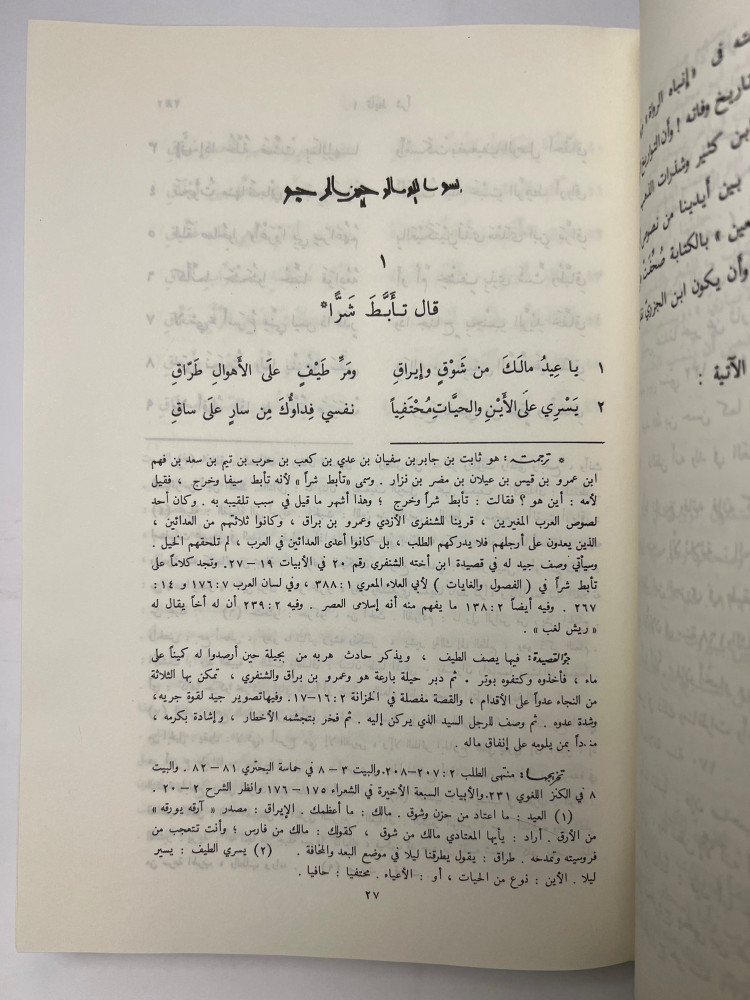 بسم الله الرحمن الرحيم
١
قال تـأبَّطَ شَرًّا*
١ يا عِيدُ مالَكَ من شَوْقٍ وإيراقِ ومَرِّ طَيْفٍ علَى الأَهوالِ طَرّاقِ
٢ يَسْرِي علَى الأَيْنِ والحيَّاتِ مُحْتَفِياً نفسي فِداؤُكَ مِن سارٍ علَى ساقِ
* ترجمته: هو ثابت بن جابر بن سفيان بن عدي بن كعب بن حرب بن تيم بن سعد بن فهم
ابن عمرو بن قيس بن عيلان بن مضر بن نزار . وسمى «تأبط شراً» لأنه تأبط سيفا وخرج ، فقيل
لأمه : أين هو ؟ فقالت : تأبط شراً وخرج ؛ وهذا أشهر ما قيل في سبب تلقيبه به . وكان أحد
لصوص العرب المغيرين ، قرينا للشنفرى الأزدي وعمرو بن براق ، وكانوا ثلاثتهم من العدائين ،
الذين يعدون على أرجلهم فلا يدركهم الطلب ، بل كانوا أعدى العدائين في العرب ، لم تلحقهم الخيل .
وسيأتي وصف جيد له في قصيدة ابن أخته الشنفري رقم ٢٠ في الأبيات ١٩ – ٢٧. وتجد كلاماً على
تأبط شراً في ( الفصول والغايات ) لأبي العلاء المعري ١ : ٣٨٨ ، وفي لسان العرب ٧ : ١٧٦ و ١٤ :
٢٦٧ . وفيه أيضاً ٢ : ١٣٨ ما يفهم منه أنه إسلامى العصر . وفيه ٢ : ٢٣٩ أن له أخا يقال له
« ريش لغب » .
جوّ القصيدة: فيها يصف الطيف ، ويذكر حادث هربه من بجيلة حين أرصدوا له كميناً على
ماء ، فأخذوه وكتفوه بوتر . ثم دبر حيلة بارعة هو وعمرو بن براق والشنفري ، تمكن بها الثلاثة
من النجاء عدواً على الأقدام ، والقصة مفصلة في الخزانة ٢ : ١٦–١٧. وفيها تصوير جيد لقوة جريه،
وشدة عدوه . ثم وصف للرجل السيد الذي يركن إليه . ثم فخر بتجشمه الأخطار ، وإشادة بكرمه ،
منندداً بمن يلومه على إنفاق ماله .
تخريجها: منتهى الطلب ٢ : ٢٠٧–٢٠٨. والبيت ٣ – ٨ في حماسة البحتري ٨١ – ٨٢ . والبيت
٨ في الكنز اللغوي ٢٣١. والأبيات السبعة الأخيرة في الشعراء ١٧٥ – ١٧٦ وانظر الشرح ٢ – ٢٠ .
(١) العيد : ما اعتاد من حزن وشوق . مالك : ما أعظمك . الإيراق : مصدر « آرقه يورقه »
من الأرق . أراد : يأيها المعتادي مالك من شوق ، كقولك : مالك من فارس ؛ وأنت تتعجب من
فروسيته وتمدحه . طراق : يقول يطرقنا ليلا في موضع البعد والمخافة . (٢) يسري الطيف : يسير
ليلا . الأين : نوع من الحيات ، أو : الأعياء . محتفيا : حافيا .
٢٧
الآتية :